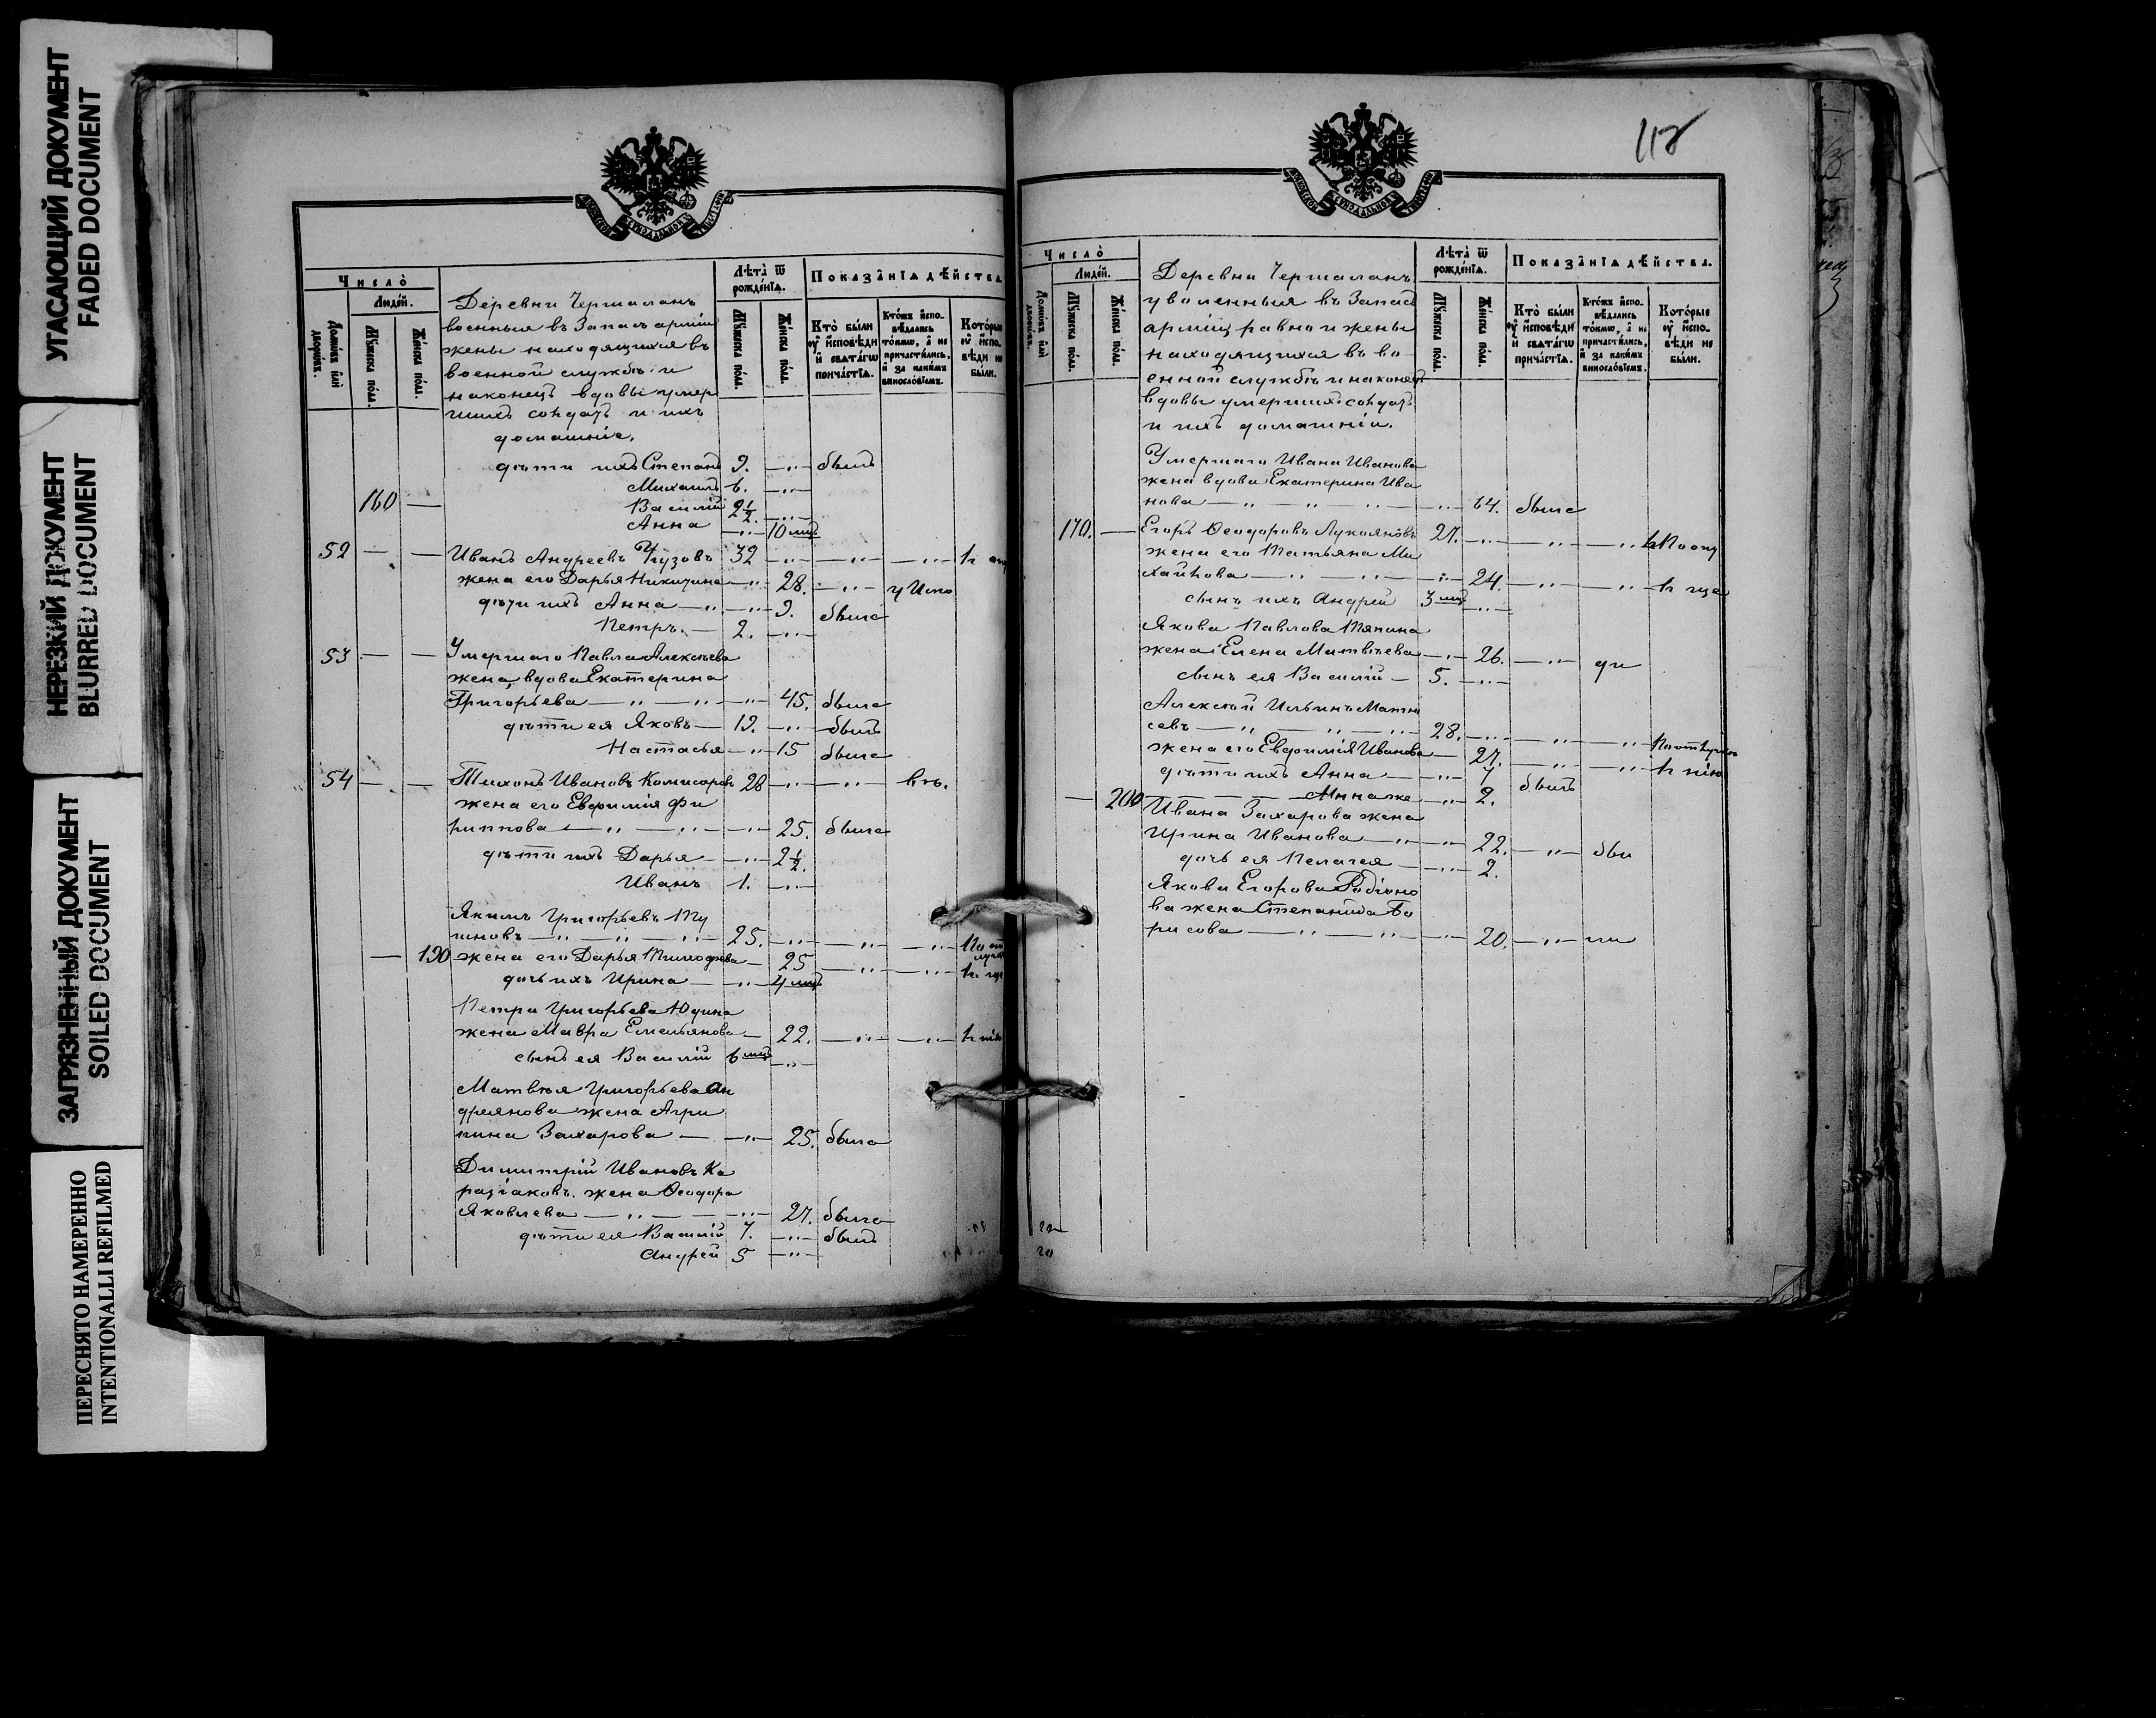 УГАСАЮЩИЙ ДОКУМЕНТ
FADED DOCUMENT
НЕРЕЗКИЙ ДОКУМЕНТ
BLURRED DOCUMENT
ЗАГРЯЗНЕННЫЙ ДОКУМЕНТ
SOILED DOCUMENT
ПЕРЕСНЯТО НАМЕРЕННО
INTENTIONALLI REFILMED
Число̀
Людей.
Домѡвъ или дворѡвъ.
Мꙋжеска полл.
Же́нска по́лл.
Деревни Чершаланъ
военныя въ Запасъ арміи
жены находящихся въ
военной службѣ и
наконецъ вдовы умер
шихъ солдатъ и ихъ
домашніе.
Лѣта̀ ѿ рожде́нїѧ.
Мꙋжеска по́лл.
Же́нска по́лл.
Показа́нїѧ дѣ́йства
Кто̀ бы́ли оу҆ и҆сповѣди и҆ свѧта́гѡ прича́стїѧ.
Кто́жъ и҆спо-вѣдались то́кмѡ, а҆ не причасти́лись, и҆ за каки́мъ винословїемъ.
Кото́рые оу҆ и҆спо-вѣди не бы́ли.
дѣти ихъ Степанъ 9. —"— былъ
Михаилъ 6. —"—
160 — Василій 2½. —"—
Анна —"— 10 мц
52 — — Иванъ Андреевъ 32 —"— —"— —"—
жена его Дарья Никитина —"— 28. —"—
дѣти ихъ Анна —"— —"— 9. была
Петръ. — 2. —"—
53 — — Умершаго Павла Алексѣева
жена вдова Екатерина
Григорьева —"— —"— —"— 45. была
дѣти ея Яковъ — 19. —"— былъ
Настасья —"— 15 была
54 — — Тихонъ Ивановъ Комисаровъ 28 —"— —"—
жена его Евфимія Фи
липпова —"— —"— —"— 25. была
дѣти ихъ Дарья — —"— 2½.
Иванъ 1. —"—
Якимъ Григорьевъ
шовъ —"— —"— —"— 25. —"— —"— —"—
— 190 жена его Дарья Тимофеева — 25 —"— —"—
дочь ихъ Ирина — —"— 4 мц
Петра Григорьева Юдина
жена Мавра Емельянова — 22. —"— —"—
сынъ ея Василій 6 мц —"—
Матвѣя Григорьева Ан
дреянова жена Агри
пина Захарова — —"— 25. была
Димитрій Ивановъ Ка
жена Ѳеодора
Яковлева —"— — —"— 27. была
дѣти ея Василій 7. —"— былъ
Андрей 5 —"—
118
Число̀
Людей.
Домѡвъ или дворѡвъ.
Мꙋжеска полл.
Же́нска по́лл.
Деревни Чершаланъ
уволенныя въ Запасъ
арміи, равно и жены
находящихся въ во-
енной службѣ и наконецъ
вдовы умершихъ солдатъ
и ихъ домашніи.
Лѣта̀ ѿ рожде́нїѧ.
Мꙋжеска по́лл.
Же́нска по́лл.
Показа́нїѧ дѣ́йства.
Кто̀ бы́ли оу҆ и҆сповѣди и҆ свѧта́гѡ прича́стїѧ.
Кто́жъ и҆спо-вѣдались то́кмѡ, а҆ не причасти́лись, и҆ за каки́мъ винословїемъ.
Кото́рые оу҆ и҆спо-вѣди не бы́ли.
Умершаго Ивана Иванова
жена вдова Екатерина Ива
нова —"— —"— —"— —"— 64. была
170. — Егоръ Ѳеодоровъ Лукояновъ 27. —"— —"—
жена его Татьяна Ми
хайлова —"— —"— —"— 24. —"— —"—
сынъ ихъ Андрей 3 мц —"—
Якова Павлова Тяпина
жена Елена Матвѣева —"— 26. —"—
сынъ ея Василій — 5. —"—
Алексѣй Ильинъ Матвѣ
евъ —"— —"— —"— 28. —"— —"— —"—
жена его Евдокимія Иванова — 27. —"— —"—
дѣти ихъ Анна — —"— 4 былъ
— 200 Анна же —"— 2.
Ивана Захарова жена
Ирина Иванова —"— —"— 22. —"—
дочь ея Пелагея — —"— 2.
Якова Егорова Родіоно
ва жена Степанида Бо
рисова —"— —"— —"— 20. —"—